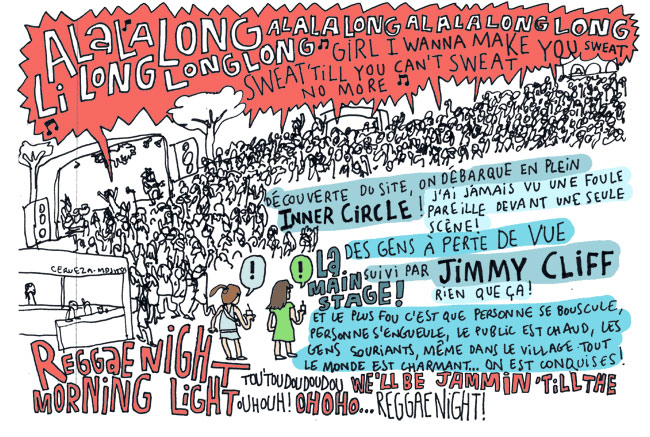 ALALALONG ALALALALONG ALALALALONG LONG
LI LONG LONG LONG LONG
GIRL I WANNA MAKE YOU SWEAT
SWEAT 'TILL YOU CAN'T SWEAT
NO MORE
DÉCOUVERTE DU SITE, ON DÉBARQUE EN PLEIN
INNER CIRCLE !
J'AI JAMAIS VU UNE FOULE
PAREILLE DEVANT UNE SEULE
SCÈNE!
DES GENS À PERTE DE VUE
LA
MAIN
STAGE!
SUIVI PAR JIMMY CLIFF
RIEN QUE ÇA!
ET LE PLUS FOU C'EST QUE PERSONNE SE BOUSCULE,
PERSONNE S'ENGUEULE, LE PUBLIC EST CHAUD, LES
GENS SOURIANTS, MÊME DANS LE VILLAGE. TOUT
LE MONDE EST CHARMANT... ON EST CONQUISES!
CERVEZA-MOJITO
!
!
REGGAE NIGHT
TOUTOUDOUDOUDOU WE'LL BE JAMMIN 'TILL THE
MORNING LIGHT
OUHOUH! OHOHO... REGGAE NIGHT!